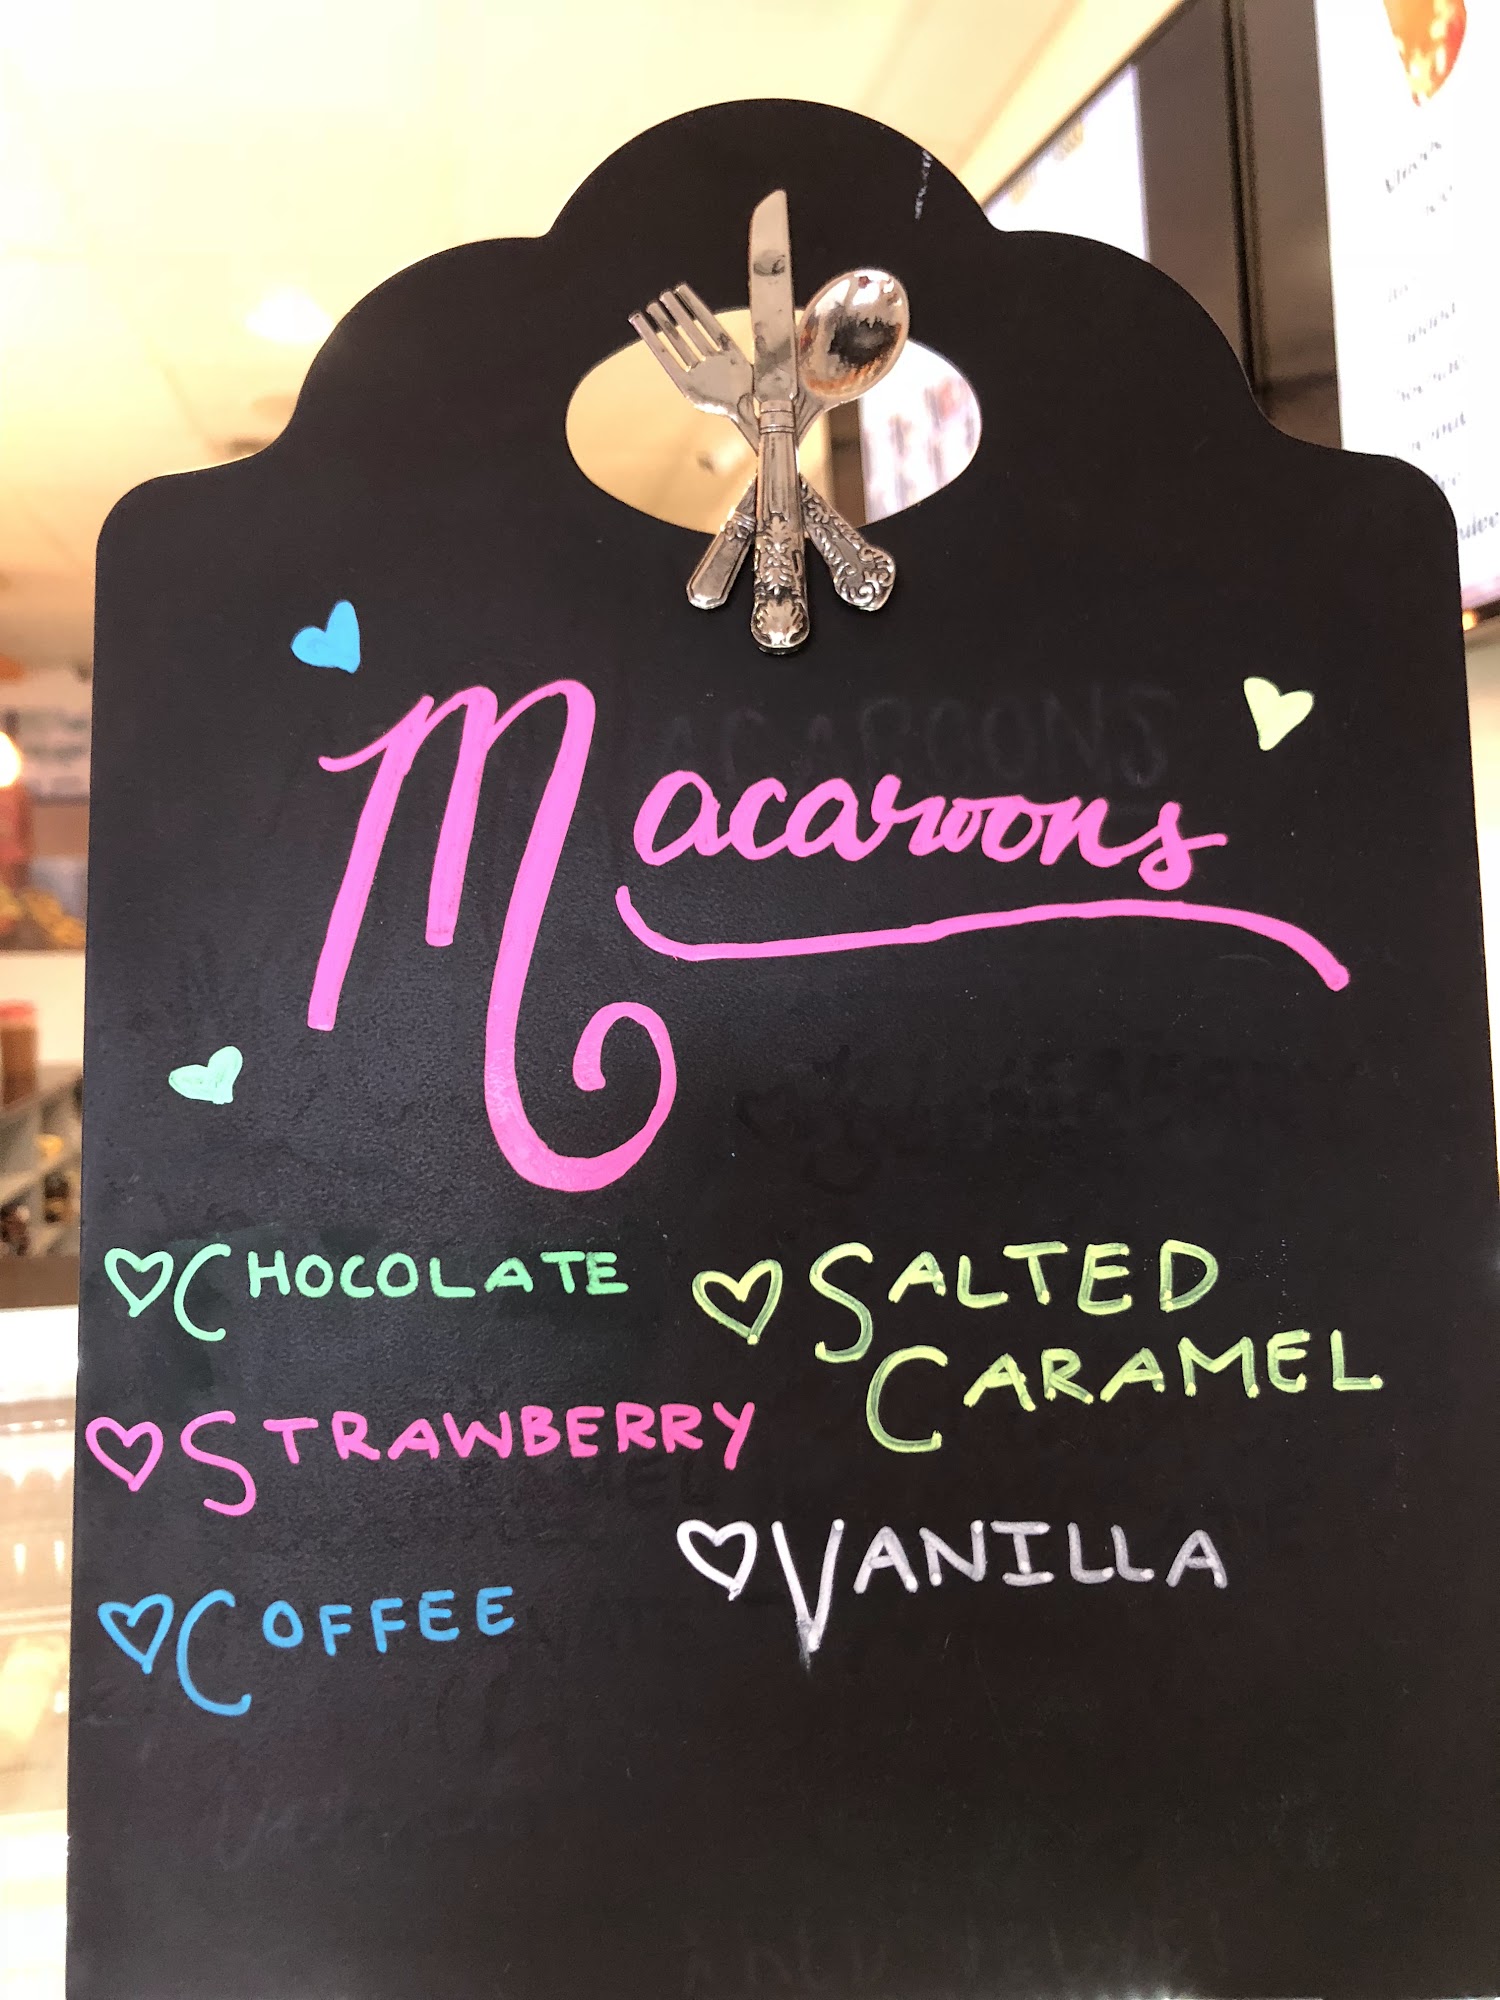 Macaroons
CHOCOLATE
STRAWBERRY
COFFEE
SALTED
CARAMEL
VANILLA